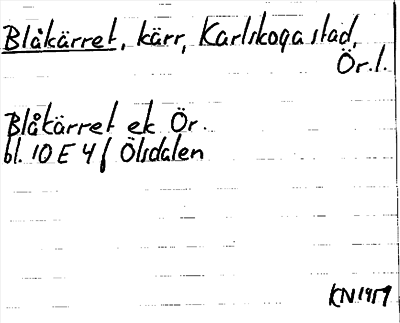 Blåkärret, kärr, Karlskoga stad,
Ör.l.
Blåkärret ek Ör.
bl. 10 E 4 f Ölsdalen